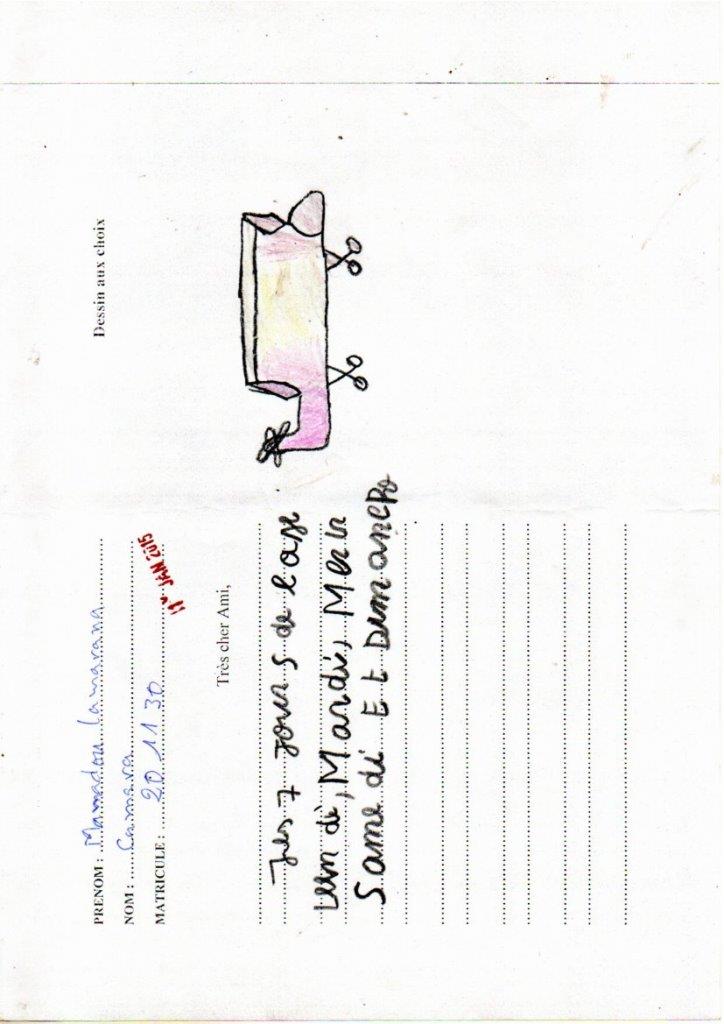 PRENOM : Mamadou Lamarana
NOM : Camara
MATRICULE : 20 11 30
JAN 2015
Très cher Ami,
Les 7 Jours de l ase
Lun di, Mardi, Me
Same di Et Dimanche
Dessin aux choix